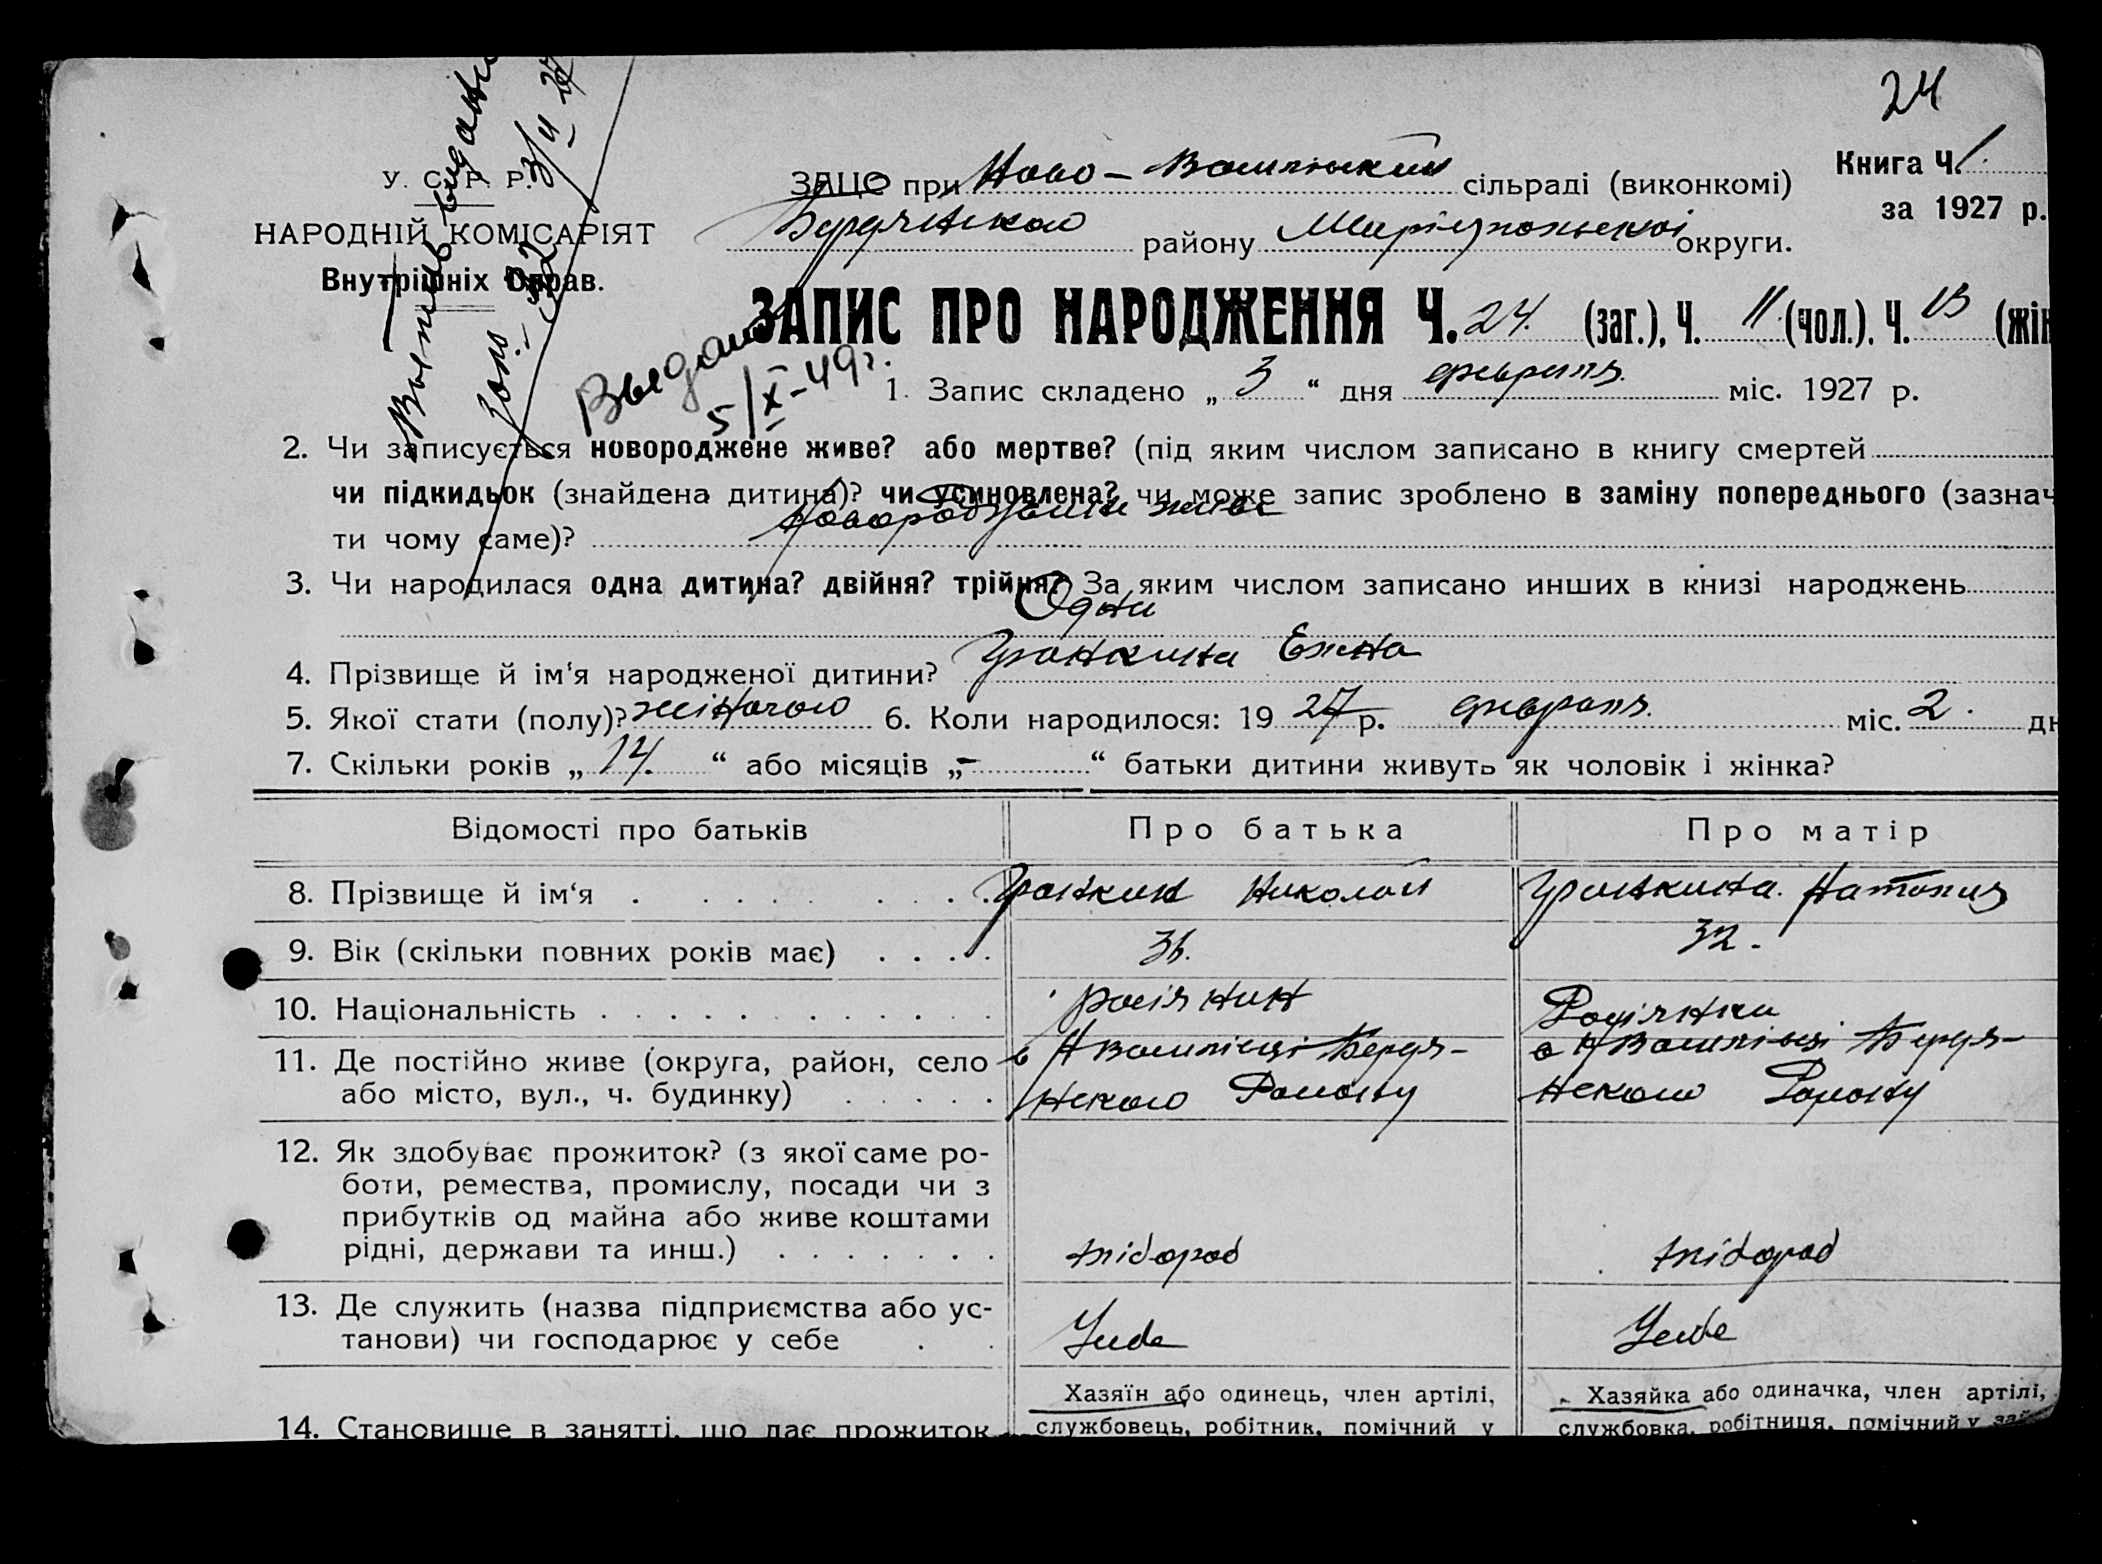 24
У. С. Р. Р.
НАРОДНІЙ КОМІСАРІЯТ
Внутрішніх Справ.
ЗАЦС при Ново- сільраді (виконкомі)
Книга Ч. 1.
за 1927 р.
Бердянсково району Маріупольськоі округи.
ЗАПИС ПРО НАРОДЖЕННЯ Ч. 24. (заг.), Ч. 11. (чол.), Ч. 13 (жін
Выдано
5/X-49г.
1. Запис складено „ 3 “ дня февраля. міс. 1927 р.
2. Чи записується новороджене живе? або мертве? (під яким числом записано в книгу смертей
чи підкидьок (знайдена дитина)? чи усиновлена? чи може запис зроблено в заміну попереднього (зазнач
ти чому саме)?
3. Чи народилася одна дитина? двійня? трійня? За яким числом записано инших в книзі народжень
Одна
4. Прізвище й ім‘я народженої дитини? Елена
5. Якої стати (полу)? жіночого 6. Коли народилося: 19 27 р. февраля. міс. 2. дн
7. Скільки років „ 14. “ або місяців „ - “ батьки дитини живуть як чоловік і жінка?
Відомості про батьків Про батька Про матір
8. Прізвище й ім‘я Николай Наталия
9. Вік (скільки повних років має) 36. 32.
10. Національність росіянин Росіянка
11. Де постійно живе (округа, район, село в Бердя- в Бердя-
або місто, вул., ч. будинку) нсково Району нсково Району
12. Як здобуває прожиток? (з якої саме ро-
боти, ремества, промислу, посади чи з
прибутків од майна або живе коштами
рідні, держави та инш.) хлібороб хлібороб
13. Де служить (назва підприємства або ус-
танови) чи господарює у себе У себе У себе
Хазяїн або одинець, член артілі, Хазяйка або одиначка, член артілі,
14. Становище в занятті, що дає прожиток службовець, робітник, помічний у службовка, робітниця, помічний у зай